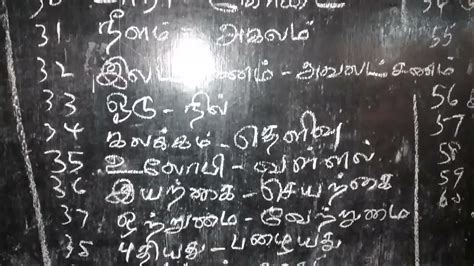 31 நீளம் - அகலம் 55
32 - அவலட்சணம்
33 ஓடு - நில் 56
34 கலக்கம் - தெளிவு 57
35 உலோபி - வள்ளல் 58
36 இயற்கை - செயற்கை 59
37 ஒற்றுமை - வேற்றுமை 60
38 புதியது - பழையது